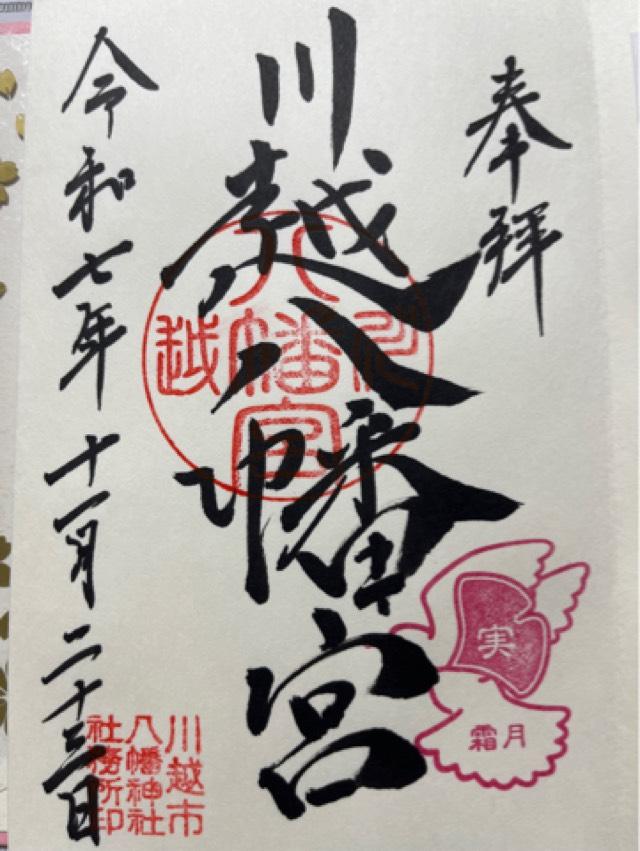 奉拝
川越八幡宮
令和七年十一月二十三日
八
川
幡
越
宮
実
霜月
川越市
八幡神社
社務所印